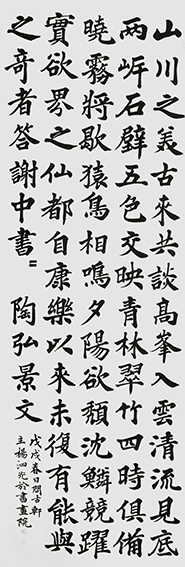 山川之美古來共談高峯入雲清流見底
兩岸石壁五色交映青林翠竹四時俱備
曉霧將歇猿鳥相鳴夕陽欲頹沈鱗競躍
實欲界之仙都自康樂以來未復有能與
之奇者答謝中書〻 陶弘景文
戊戌春日閒古軒
主楊泗光於書畫院